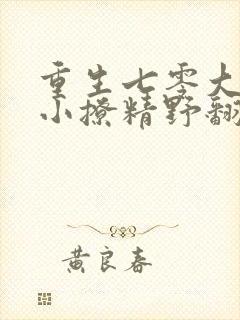 重生七零大
小撩精野翻
黄良春